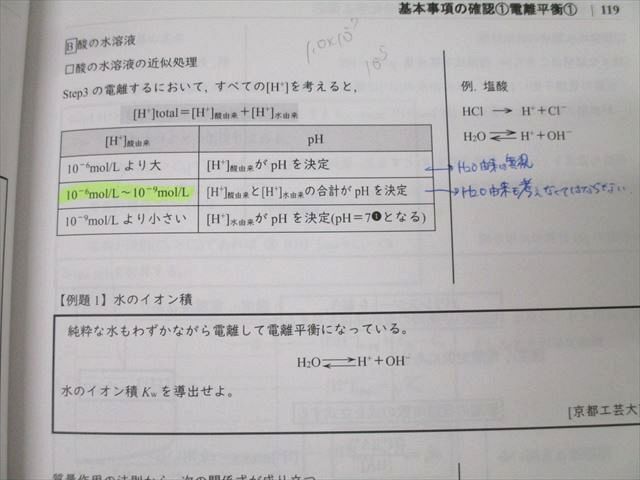 基本事項の確認①電離平衡① | 119
B 酸の水溶液
1.0×10⁻⁷
10⁵
□酸の水溶液の近似処理
Step3 の電離するにおいて，すべての[H⁺]を考えると，
[H⁺]total＝[H⁺]酸由来＋[H⁺]水由来
[H⁺]酸由来 pH
10⁻⁶mol/L より大 [H⁺]酸由来が pH を決定
10⁻⁶mol/L～10⁻⁹mol/L [H⁺]酸由来と[H⁺]水由来の合計が pH を決定
10⁻⁹mol/L より小さい [H⁺]水由来が pH を決定(pH＝7❶となる)
例．塩酸
HCl → H⁺＋Cl⁻
H₂O ⇄ H⁺＋OH⁻
H₂O由来は無視
H₂O由来も考えなくてはならない
【例題 1】水のイオン積
純粋な水もわずかながら電離して電離平衡になっている。
H₂O ⇄ H⁺＋OH⁻
水のイオン積 Kw を導出せよ。
[京都工芸大
質量作用の法則から，次の関係式が成り立つ